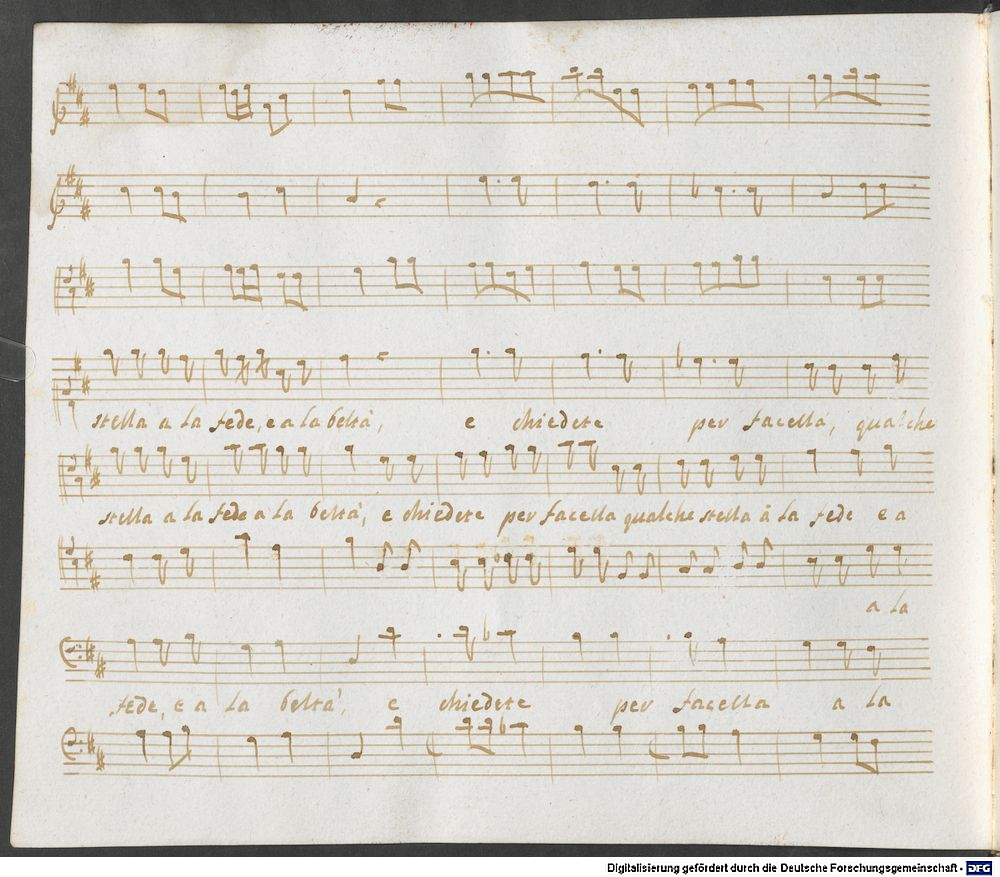 stella a la fede, e a la beltà, e chiedete per facella, qualche
stella a la fede a la beltà, e chiedete per facella qualche stella à la fede e a
a la
fede, e a la beltà, e chiedete per facella a la
Digitalisierung gefördert durch die Deutsche Forschungsgemeinschaft - DFG